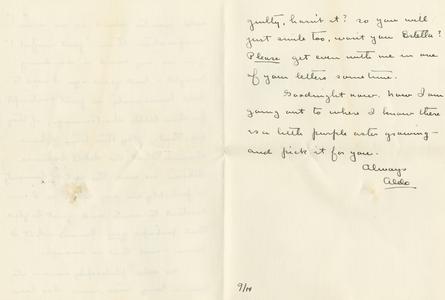 guilty, hasn't it? so you will
just smile too, wont you Estella?
Please get even with me in one
of your letters sometime.
Goodnight now. now I am
going out to where I know there
is a little purple aster growing –
and pick it for you.
Always
Aldo
9/14